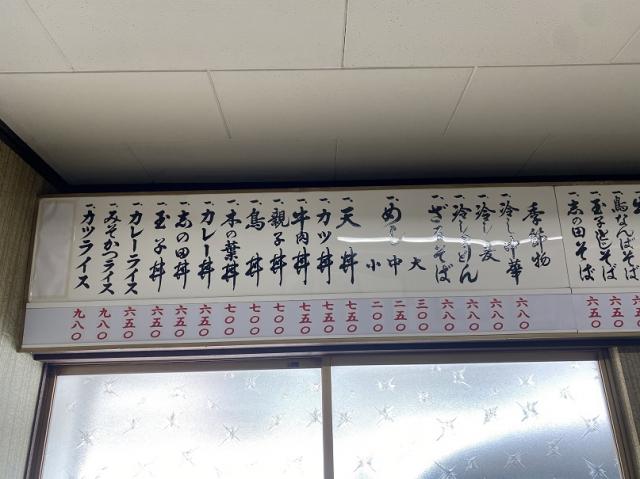 一、鳥なんばそば
一、玉子とじそば 六五〇
一、志の田そば 六五〇
季節物
一、冷し中華 六八〇
一、冷し麦 六八〇
一、冷しうどん 六八〇
一、ざるそば 六八〇
一、めし 大 三〇〇
中 二五〇
小 二〇〇
一、天丼 七五〇
一、カツ丼 七五〇
一、牛肉丼 七〇〇
一、親子丼 七〇〇
一、鳥丼 七〇〇
一、木の葉丼 七〇〇
一、カレー丼 六五〇
一、志の田丼 六五〇
一、玉子丼 六五〇
一、カレーライス 六五〇
一、みそかつライス 九八〇
一、カツライス 九八〇